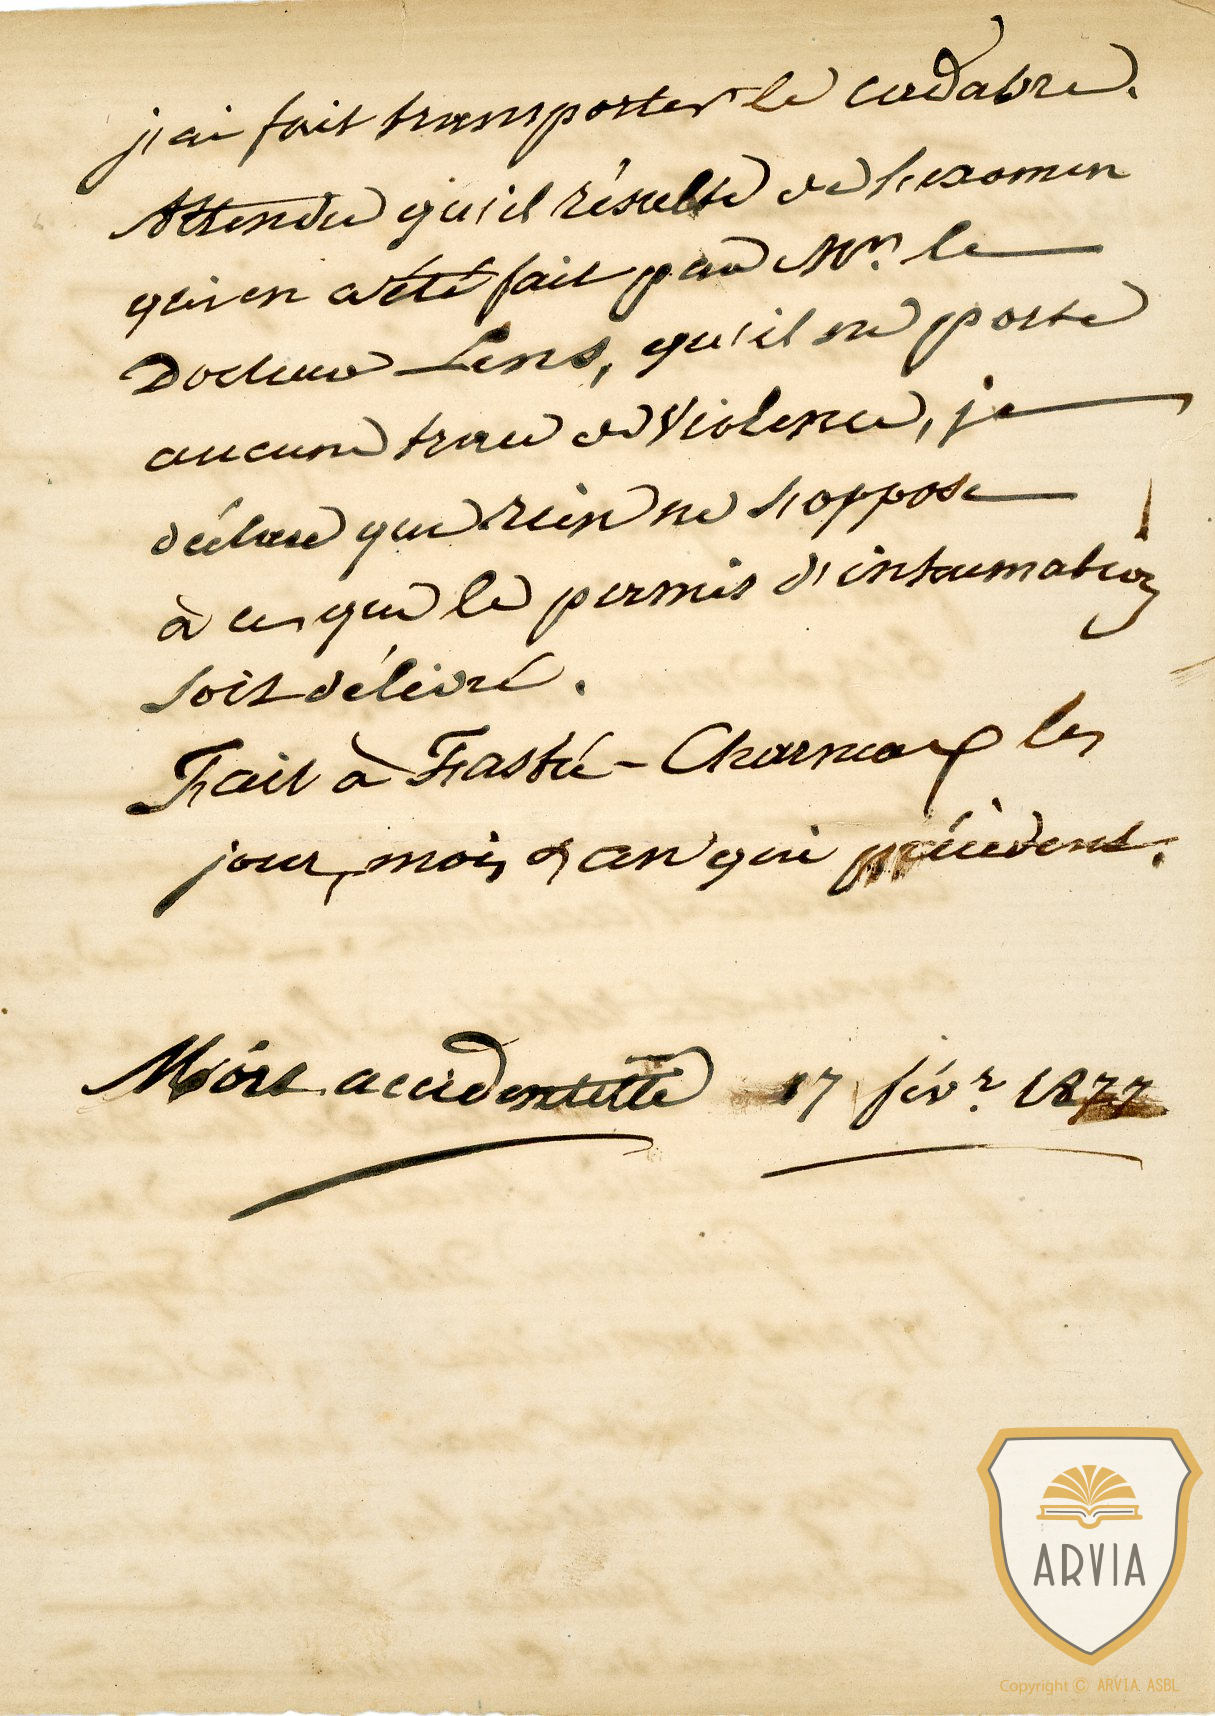 j'ai fait transporter le cadabre.
Attendu qu'il résulte de l'examen
qui en a été fait par Mr. le
Docteur Lens, qu'il ne porte
aucune trace de violence, je
déclare que rien ne s'oppose
à ce que le permis d'inhumation
soit délivré.
Fait à Tastré-Charneux les
jour, mois & an qui précèdent.
Mort accidentelle 17 févr 1877
ARVIA
Copyright © ARVIA ASBL